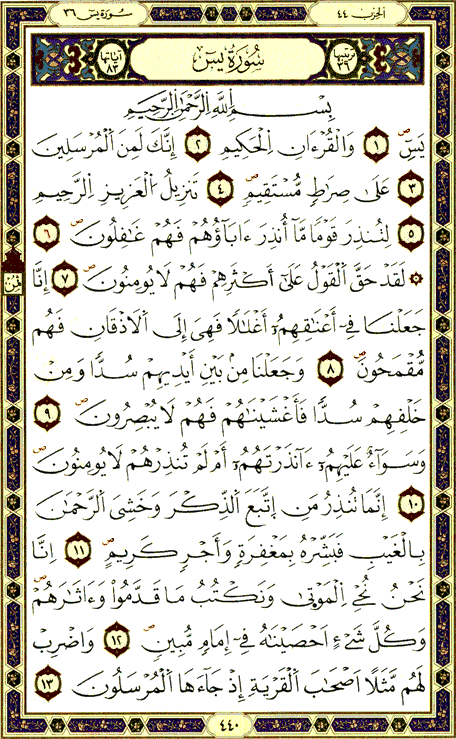 الحزب ٤٤
سورة يس ٣٦
ترتيبها ٣٦
سُورَةُ يسٓ
آياتها ٨٣
بِسْمِ اللَّهِ الرَّحْمَٰنِ الرَّحِيمِ
يسٓ ١ وَالْقُرْءَانِ اِ۬لْحَكِيمِ ٢ إِنَّكَ لَمِنَ اَ۬لْمُرْسَلِينَ
٣ عَلَىٰ صِرَٰطٍ مُّسْتَقِيمٍ ٤ تَنزِيلُ اُ۬لْعَزِيزِ اِ۬لرَّحِيمِ
٥ لِتُنذِرَ قَوْمًا مَّآ أُنذِرَ ءَابَآؤُهُمْ فَهُمْ غَٰفِلُونَ ٦
۞ لَقَدْ حَقَّ اَ۬لْقَوْلُ عَلَىٰٓ أَكْثَرِهِمْ فَهُمْ لَا يُومِنُونَ ٧ إِنَّا
ثمن
جَعَلْنَا فِےٓ أَعْنَٰقِهِمُۥٓ أَغْلَٰلًا فَهِىَ إِلَى اَ۬لَاذْقَانِ فَهُم
مُّقْمَحُونَ ٨ وَجَعَلْنَا مِنۢ بَيْنِ أَيْدِيهِمْ سُدًّا وَمِنْ
خَلْفِهِمْ سُدًّا فَأَغْشَيْنَٰهُمْ فَهُمْ لَا يُبْصِرُونَ ٩
وَسَوَآءٌ عَلَيْهِمُۥٓ ءَآنذَرْتَهُمُۥٓ أَمْ لَمْ تُنذِرْهُمْ لَا يُومِنُونَ
١٠ إِنَّمَا تُنذِرُ مَنِ اِ۪تَّبَعَ اَ۬لذِّكْرَ وَخَشِىَ اَ۬لرَّحْمَٰنَ
بِالْغَيْبِ فَبَشِّرْهُ بِمَغْفِرَةٍ وَأَجْرٍ كَرِيمٍ ١١ اِنَّا
نَحْنُ نُحْىِ اِ۬لْمَوْتَىٰ وَنَكْتُبُ مَا قَدَّمُواْ وَءَاثَٰرَهُمْ
وَكُلَّ شَےْءٍ اَحْصَيْنَٰهُ فِےٓ إِمَامٍ مُّبِينٍ ١٢ وَاضْرِبْ
لَهُم مَّثَلًا اَصْحَٰبَ اَ۬لْقَرْيَةِ إِذْ جَآءَهَا اَ۬لْمُرْسَلُونَ ١٣
٤٤٠